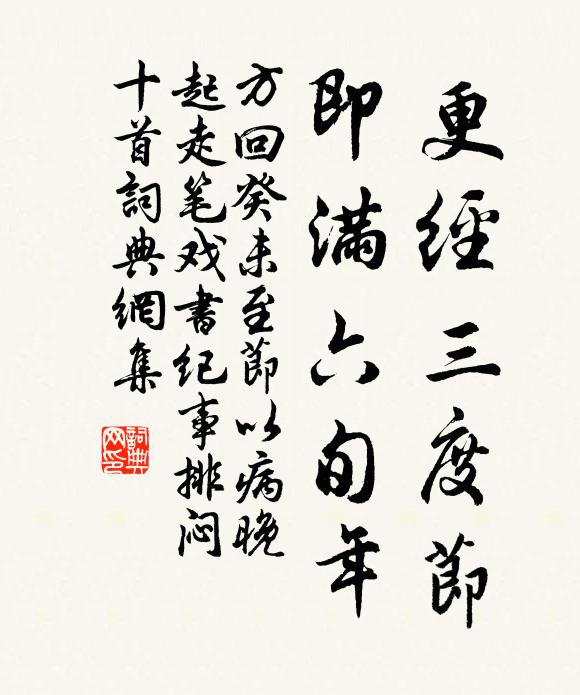 更經三度節
即滿六旬年
方回癸未至節以病晚
起走笔戏書纪事排闷
十首詞典網集
詞典网印